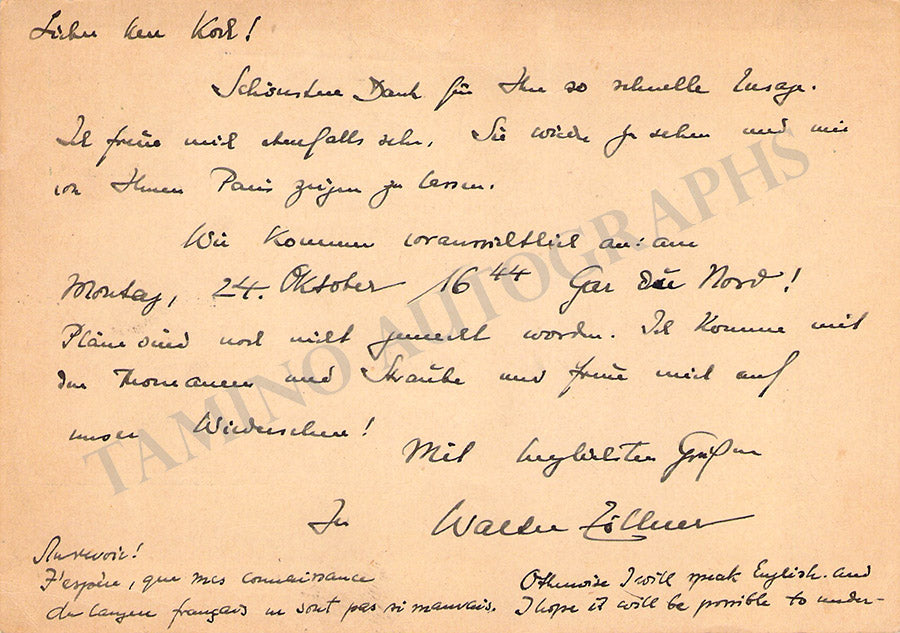 Lieber Herr Koch!
Schönsten Dank für Ihre so schnelle Zusage.
Ich freue mich ebenfalls sehr, Sie wieder zu sehen und mir
von Ihnen Paris zeigen zu lassen.
Wir kommen voraussichtlich an: am
Montag, 24. Oktober 16 44 Gar du Nord!
Pläne sind noch nicht gemacht worden. Ich komme mit
den Thomanern und Straube und freue mich auf
unser Wiedersehen!
Mit herzlichsten Grüßen
Ihr Walter Zöllner
Au revoir!
J'espère, que mes connaissance
de langue français ne sont pas si mauvais.
Otherwise I will speak English. and
I hope it will be possible to under-
TAMINO AUTOGRAPHS